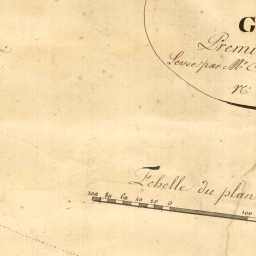 G
Premi
Levée par Mr.
Echelle du plan
100 80 60 40 20 0 100